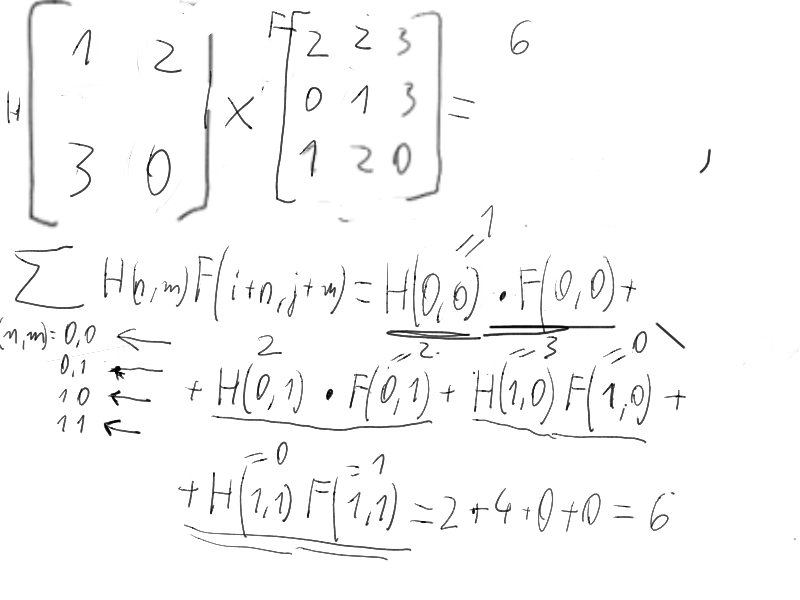 H [ 1 2 ; 3 0 ] × F [ 2 2 3 ; 0 1 3 ; 1 2 0 ] = 6
= 1
∑ H(n,m) F(i+n, j+m) = H(0,0) · F(0,0) +
(n,m) = 0,0 ←
2 = 2 = 3 = 0
0,1 ← + H(0,1) · F(0,1) + H(1,0) F(1,0) +
1 0 ←
1 1 ←
= 0 = 1
+ H(1,1) F(1,1) = 2 + 4 + 0 + 0 = 6